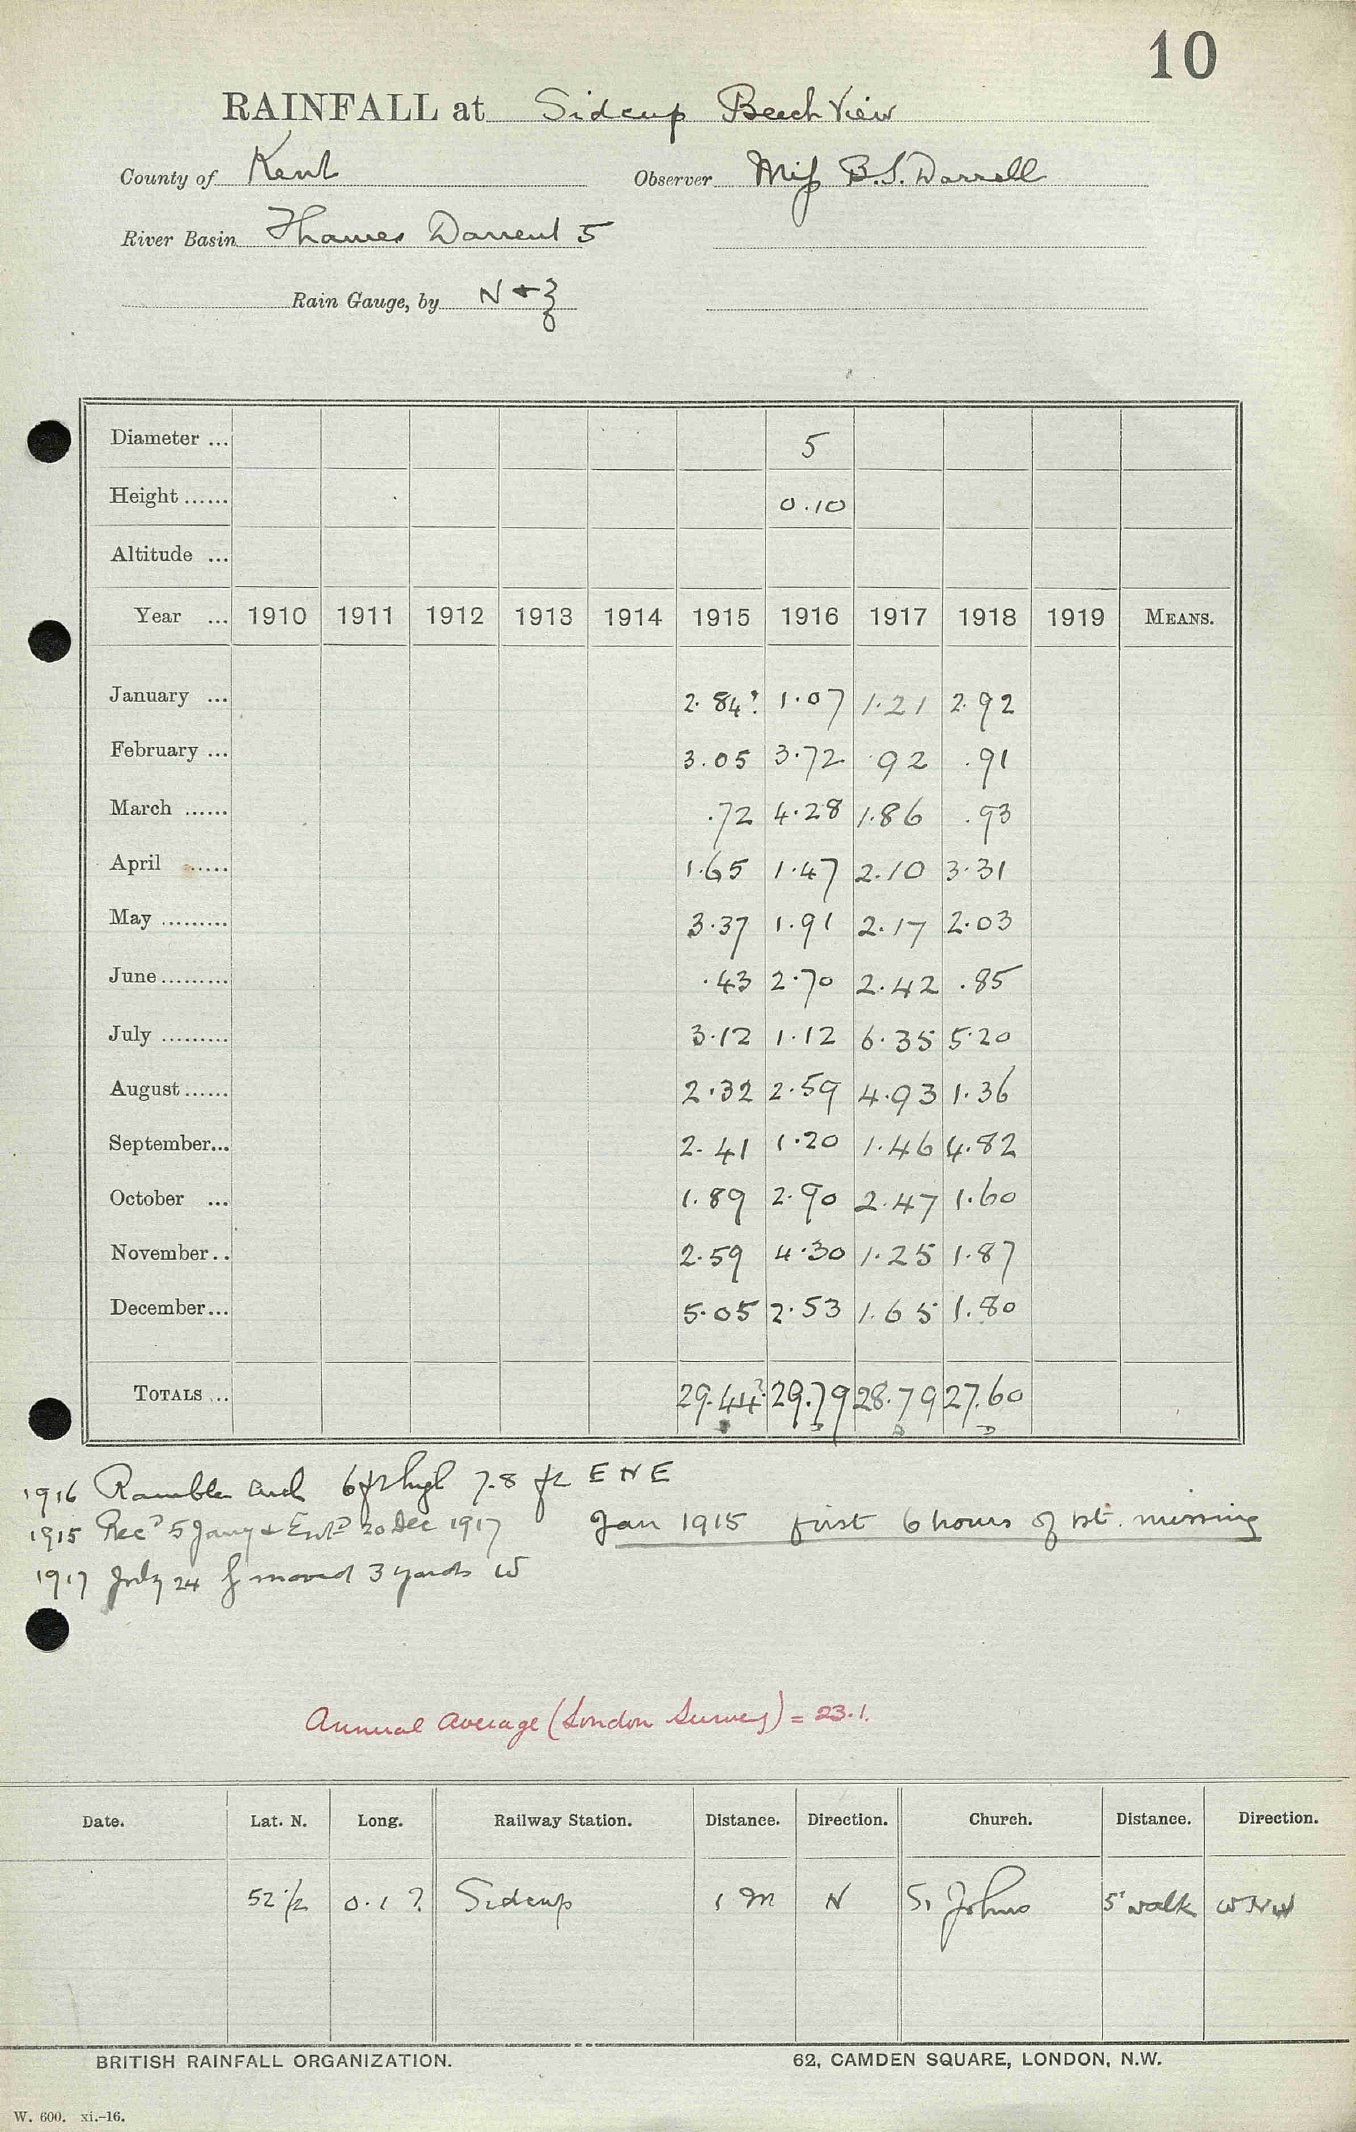 10
RAINFALL at Sidcup Beech View
County of Kent Observer Miss B.S. Darrell
River Basin Thames Darrent 5
Rain Gauge, by N + Z
Diameter ... 5
Height ...... 0.10
Altitude ...
Year ... 1910 1911 1912 1913 1914 1915 1916 1917 1918 1919 MEANS.
January ... 2.84? 1.07 1.21 2.92
February ... 3.05 3.72 .92 .91
March ...... .72 4.28 1.86 .93
April ...... 1.65 1.47 2.10 3.31
May ......... 3.37 1.91 2.17 2.03
June ......... .43 2.70 2.42 .85
July ......... 3.12 1.12 6.35 5.20
August ...... 2.32 2.59 4.93 1.36
September... 2.41 1.20 1.46 4.82
October ... 1.89 2.90 2.47 1.60
November.. 2.59 4.30 1.25 1.87
December... 5.05 2.53 1.65 1.80
TOTALS ... 29.44? 29.79 28.79 27.60
1916 Rambler arch 6 ft high 7.8 ft E N E
1915 Recd 5 Jany & Entd 20 Dec 1917 Jan 1915 first 6 hours of 1st. missing
1917 July 24 g moved 3 yards W
Annual Average (London Survey) = 23.1.
Date. Lat. N. Long. Railway Station. Distance. Direction. Church. Distance. Direction.
52 1/2 0.1 ? Sidcup 1 M N St Johns 5' walk WNW
BRITISH RAINFALL ORGANIZATION. 62, CAMDEN SQUARE, LONDON, N.W.
W. 600. xi.-16.